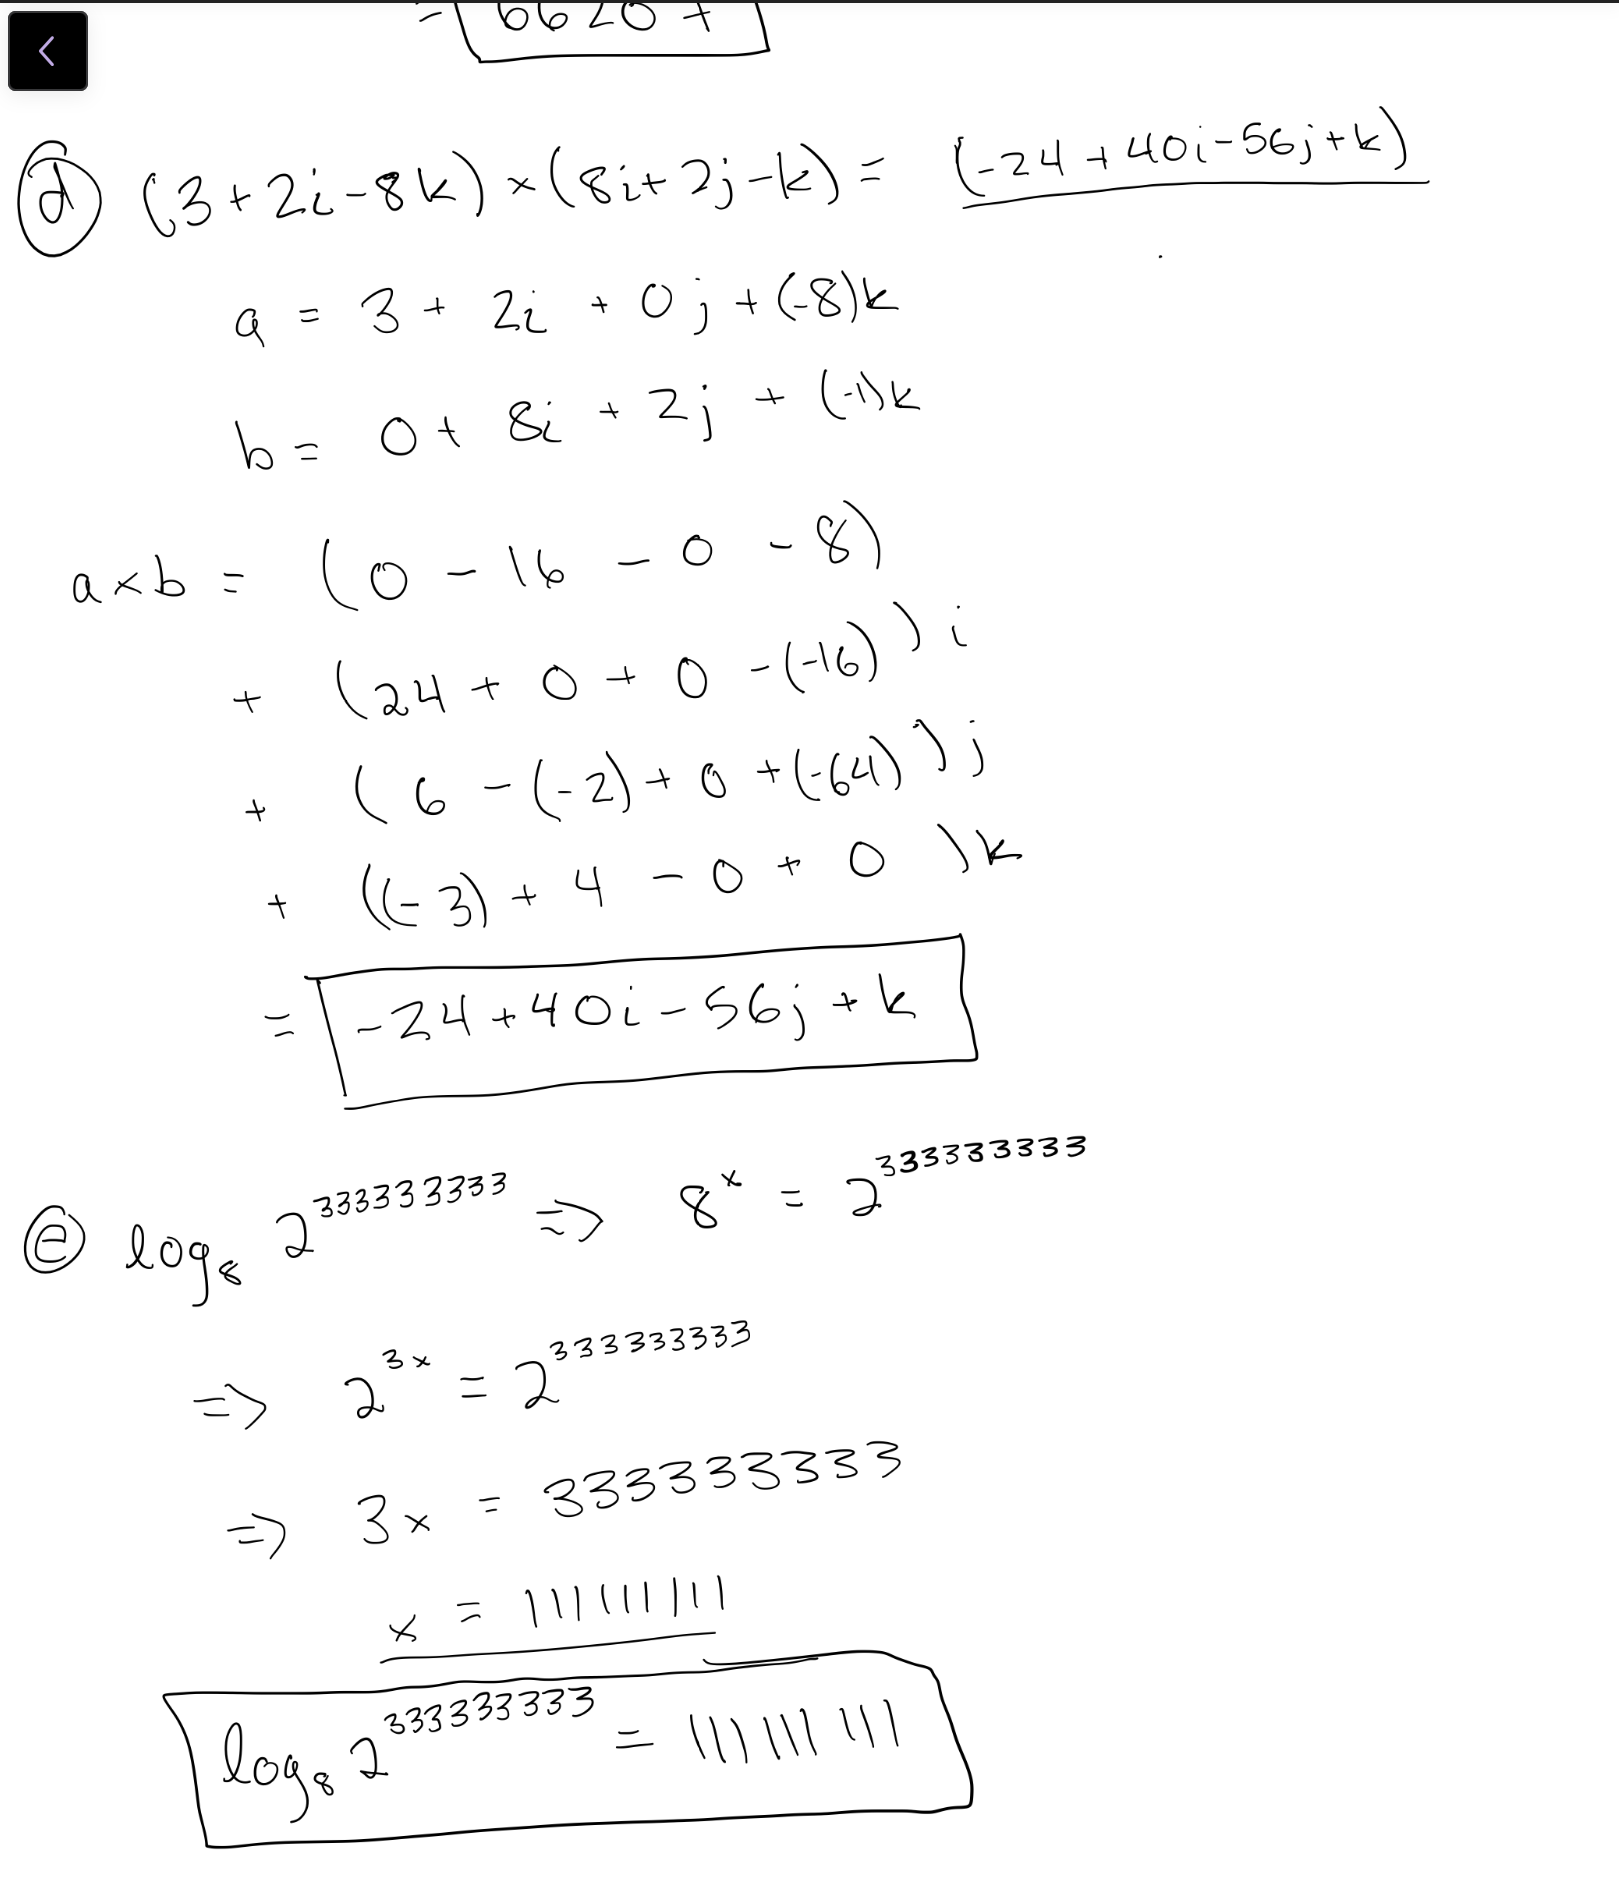 = 6620
(d) (3+2i-8k) × (8i+2j-k) = (-24+40i-56j+k)
a = 3 + 2i + 0j + (-8)k
b = 0 + 8i + 2j + (-1)k
a×b = (0 - 16 - 0 - 8)
+ (24 + 0 + 0 - (-16)) i
+ (6 - (-2) + 0 + (-64)) j
+ ((-3) + 4 - 0 + 0) k
= -24+40i-56j+k
(e) log₈ 2^333333333 => 8^x = 2^333333333
=> 2^3x = 2^333333333
=> 3x = 333333333
x = 111111111
log₈ 2^333333333 = 111111111